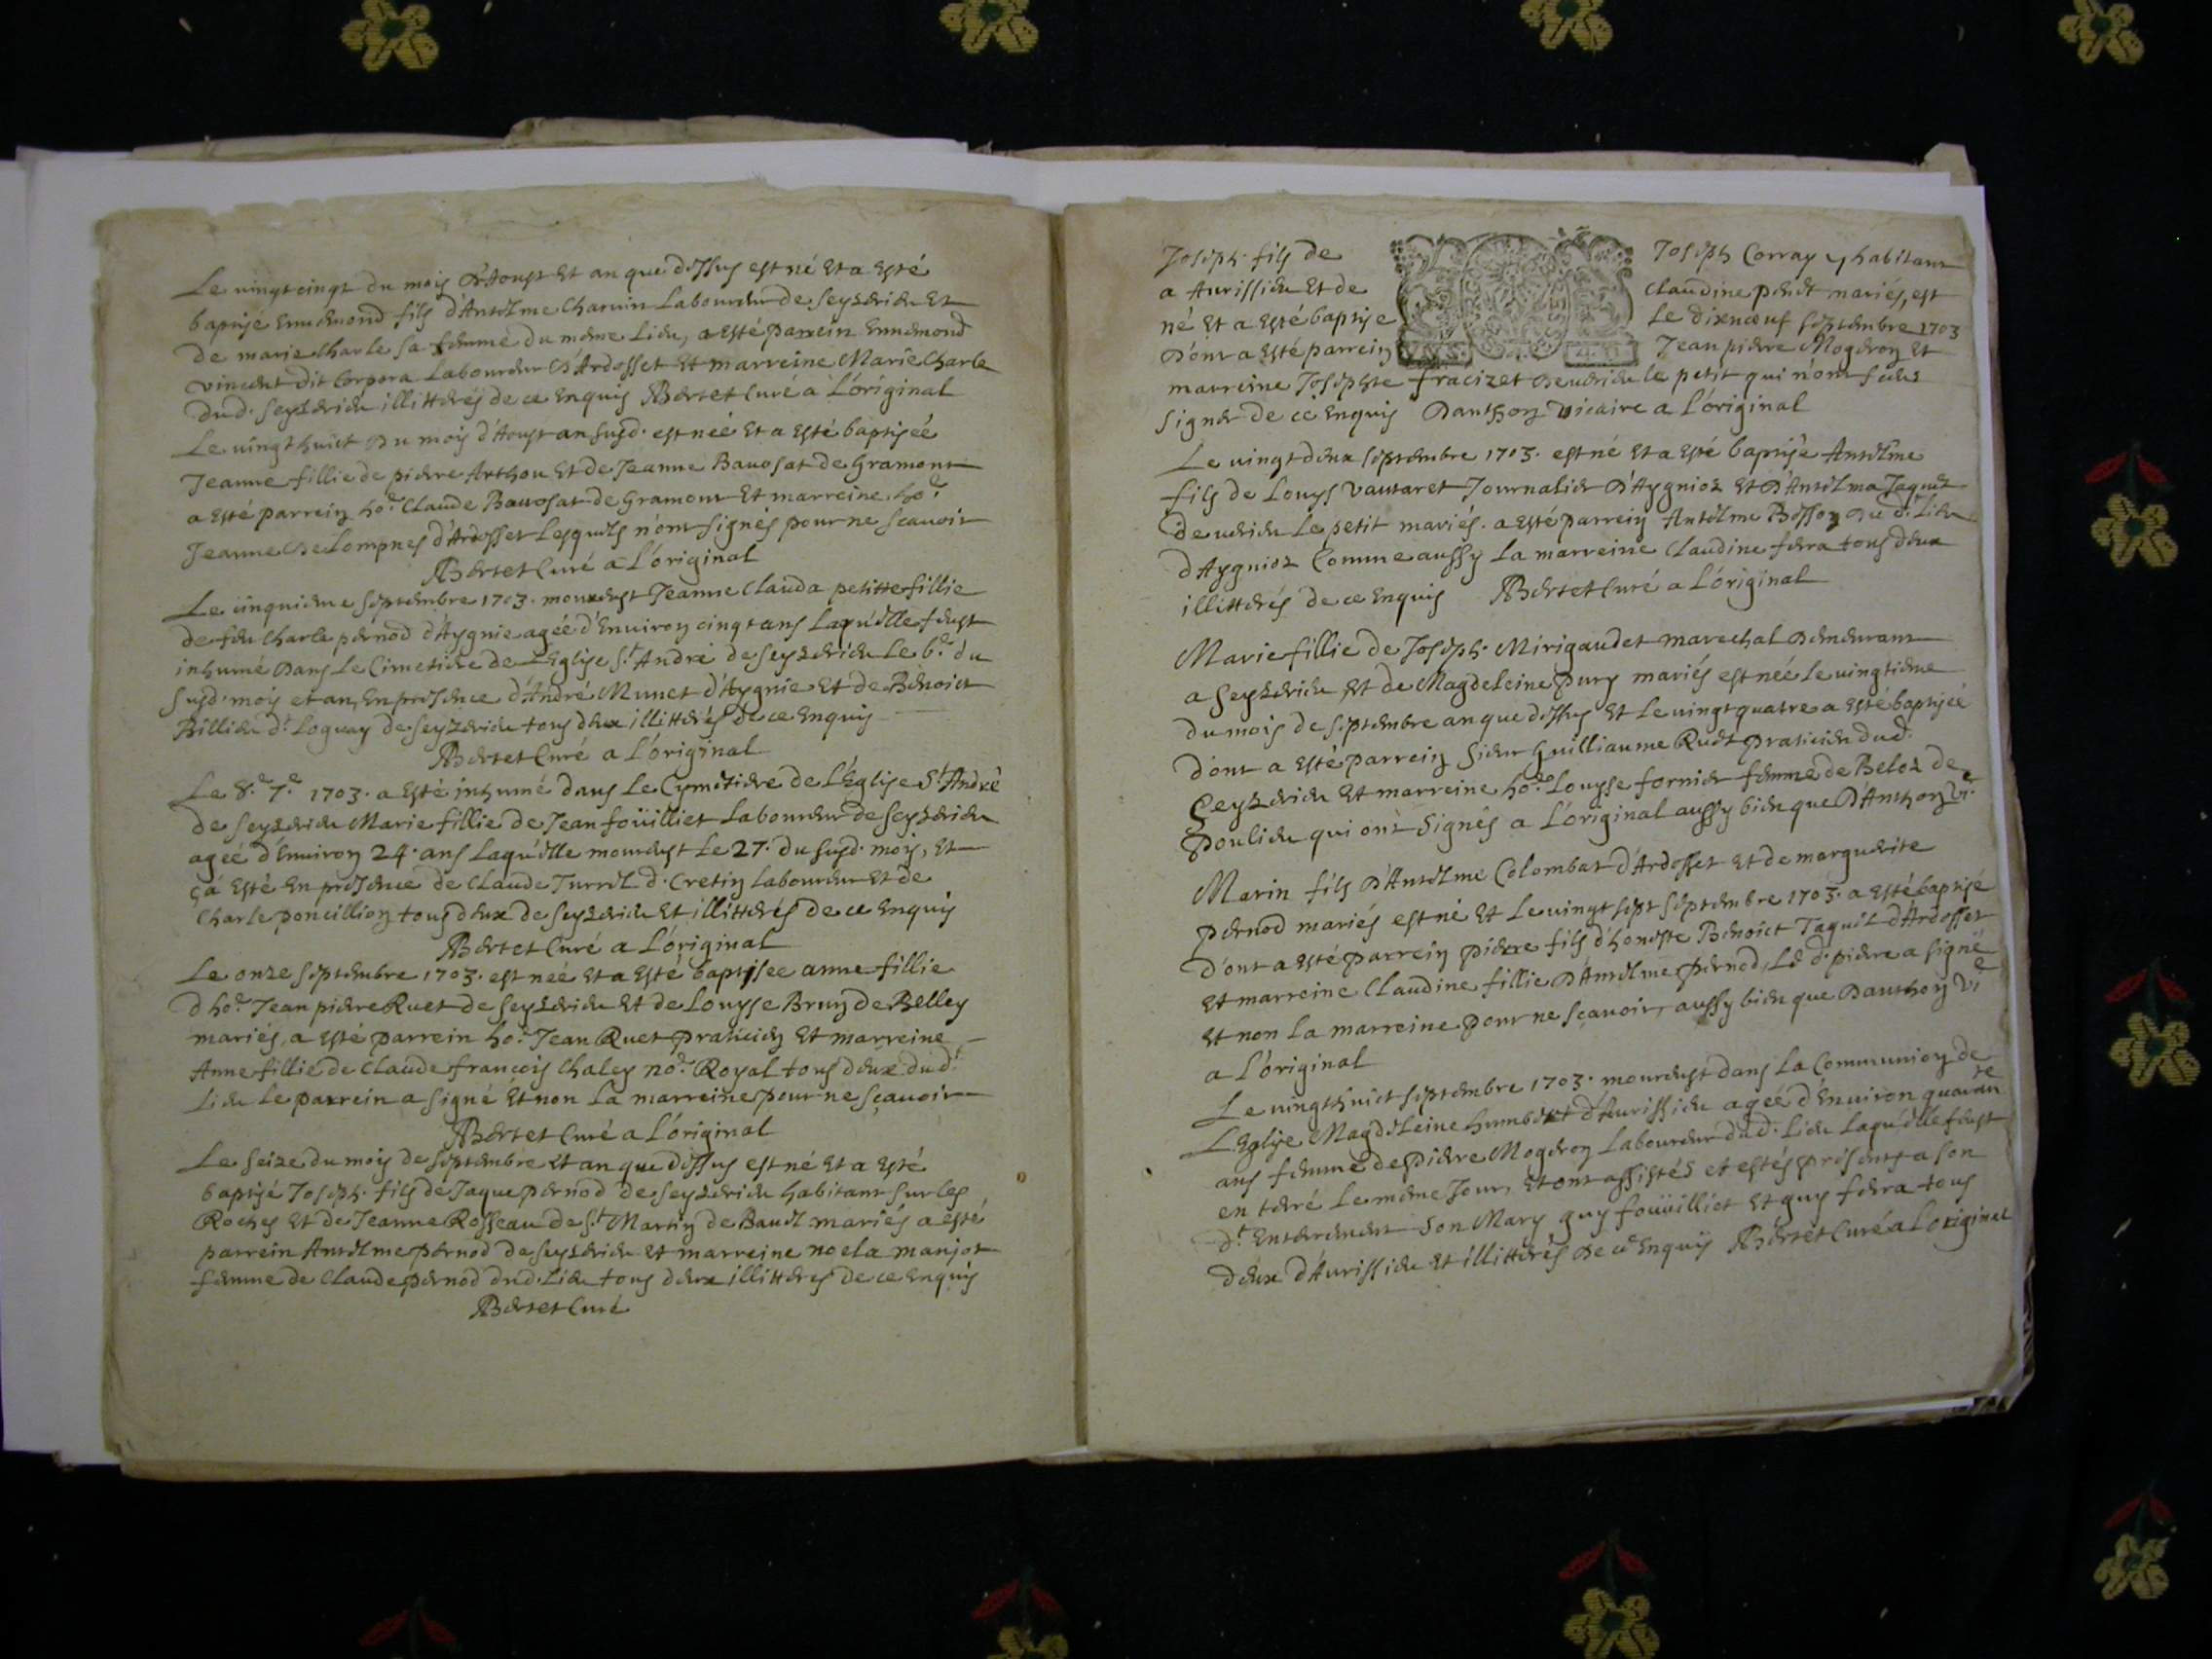 Le vingt cinqt du mois d'Aoust Et an que dessus est né Et a Esté
baptisé Ennemond fils d'Antelme Charvin Laboureur de Seyzerieu Et
de marie Charle sa femme du meme Lieu, a Esté parrein Ennemond
vincent dit Corpora Laboureur d'Ardosset Et marreine Marie Charle
dud. Seyzerieu illitterés de ce Enquis Bertet Curé a L'original
Le vingt huict Du mois d'Aoust an susd. est née Et a Esté baptisée
Jeanne fillie de pierre Arthou Et de Jeanne Bavosat de Gramont
a Esté parrein ho.e Claude Bavosat de Gramont Et marreine ho.e
Jeanne De lompnes d'Ardosset Lesquels n'ont signés pour ne scavoir
Bertet Curé a L'original
Le cinquieme septembre 1703. moureust Jeanne Clauda petitte fillie
de feu Charle pernod d'Aygnie agée d'Environ cinqt ans Laqu'elle feust
inhumé Dans Le Cimetiere de L'Eglise S.t André de Seyzerieu Le 6.e du
susd. mois et an, En presence d'André Munet d'Aygnie Et de Benoict
Billieu d.t Loguay de Seyzerieu tous deux illitterés de ce Enquis
Bertet Curé a L'original
Le 8.e 7.e 1703. a Esté inhumé dans Le Cymetiere de L'Eglise S.t André
de Seyzerieu Marie fillie de Jean foüilliet Laboureur de Seyzerieu
agée d'Environ 24. ans Laqu'elle moureust Le 27. du susd. mois, Et
ça Esté En presence de Claude Turrel d. Cretin Laboureur Et de
Charle poncillion tous deux de Seyzerieu Et illitterés de ce Enquis
Bertet Curé a L'original
Le onze septembre 1703. est née Et a Esté baptisee anne fillie
d ho.e Jean pierre Ruet de Seyzerieu Et de Louyse Brun de Belley
mariés, a Esté parrein ho.e Jean Ruet praticien Et marreine
Anne fillie de Claude françois Chaley no.e Royal tous deux dud.t
Lieu Le parrein a signé Et non La marreine pour ne sçavoir
Bertet Curé a L'original
Le seize du mois de septembre Et an que dessus est né Et a Esté
baptisé Joseph. fils de Jaque pernod de Seyzerieu habitant sur les
Roches Et de Jeanne Rosseau de S.t Martin de Bavel mariés a esté
parrein Antelme pernod de Seyzerieu Et marreine noela manjot
femme de Claude pernod dud. Lieu tous deux illitterés de ce Enquis
Bertet Curé
Joseph. fils de Joseph Corray y habitant
a Aurissieu Et de Claudine mariés, est
né Et a Esté baptise Le dixneuf septembre 1703
D'ont a Esté parrein Jean pierre Mogeron Et
marreine Josephte fracizet De verieu le petit qui n'ont sceus
signer de ce Enquis Danthon Vicaire a L'original
Le vingt deux septembre 1703. est né Et a Esté baptisé Antelme
fils de Louys Vautaret Journalier d'Aygnioz Et d'Antelma Jaquet
de verieu Le petit mariés. a Esté parrein Antelme Bosson du d. Lieu
d'Aygnioz Comme aussy La marreine Claudine ferra tous deux
illitterés de ce Enquis Bertet Curé a L'original
Marie fillie de Joseph. Mirigaudet marechal Demeurant
a Seyzerieu Et de Magdeleine pury mariés est née le vingtieme
du mois de septembre an que dessus Et Le vingt quatre a Esté baptisée
d'ont a Esté parrein sieur Guilliaume Ruet praticien dud.
Seyzerieu Et marreine ho.e Louyse fornier femme de Beloz de
poulieu qui ont Signés a L'original aussy bien que D'Anthon Vi.e
Marin fils D'Antelme Colombat d'Ardosset Et de marguerite
pernod mariés est né Et Le vingt sept septembre 1703. a Esté baptisé
d'ont a Esté parrein pierre fils d'honeste Benoict Taquel d'Ardosset
Et marreine Claudine fillie D'Antelme pernod, Le d. pierre a signé
Et non La marreine pour ne sçavoir, aussy bien que Danthon Vi.e
a L'original
Le vingt huict septembre 1703. moureust dans La Communion de
L'Eglise Magdeleine humbert d'Aurissieu agée d'Environ quarante
ans femme de pierre Mogeron Laboureur dud. Lieu Laqu'elle feust
en terré Le meme Jour, Et ont assistés et estés presents a son
d.t Enterement son Mary guy foüilliet Et guy ferra tous
deux d'Aurissieu Et illitterés De ce Enquis Bertet Curé a L'original